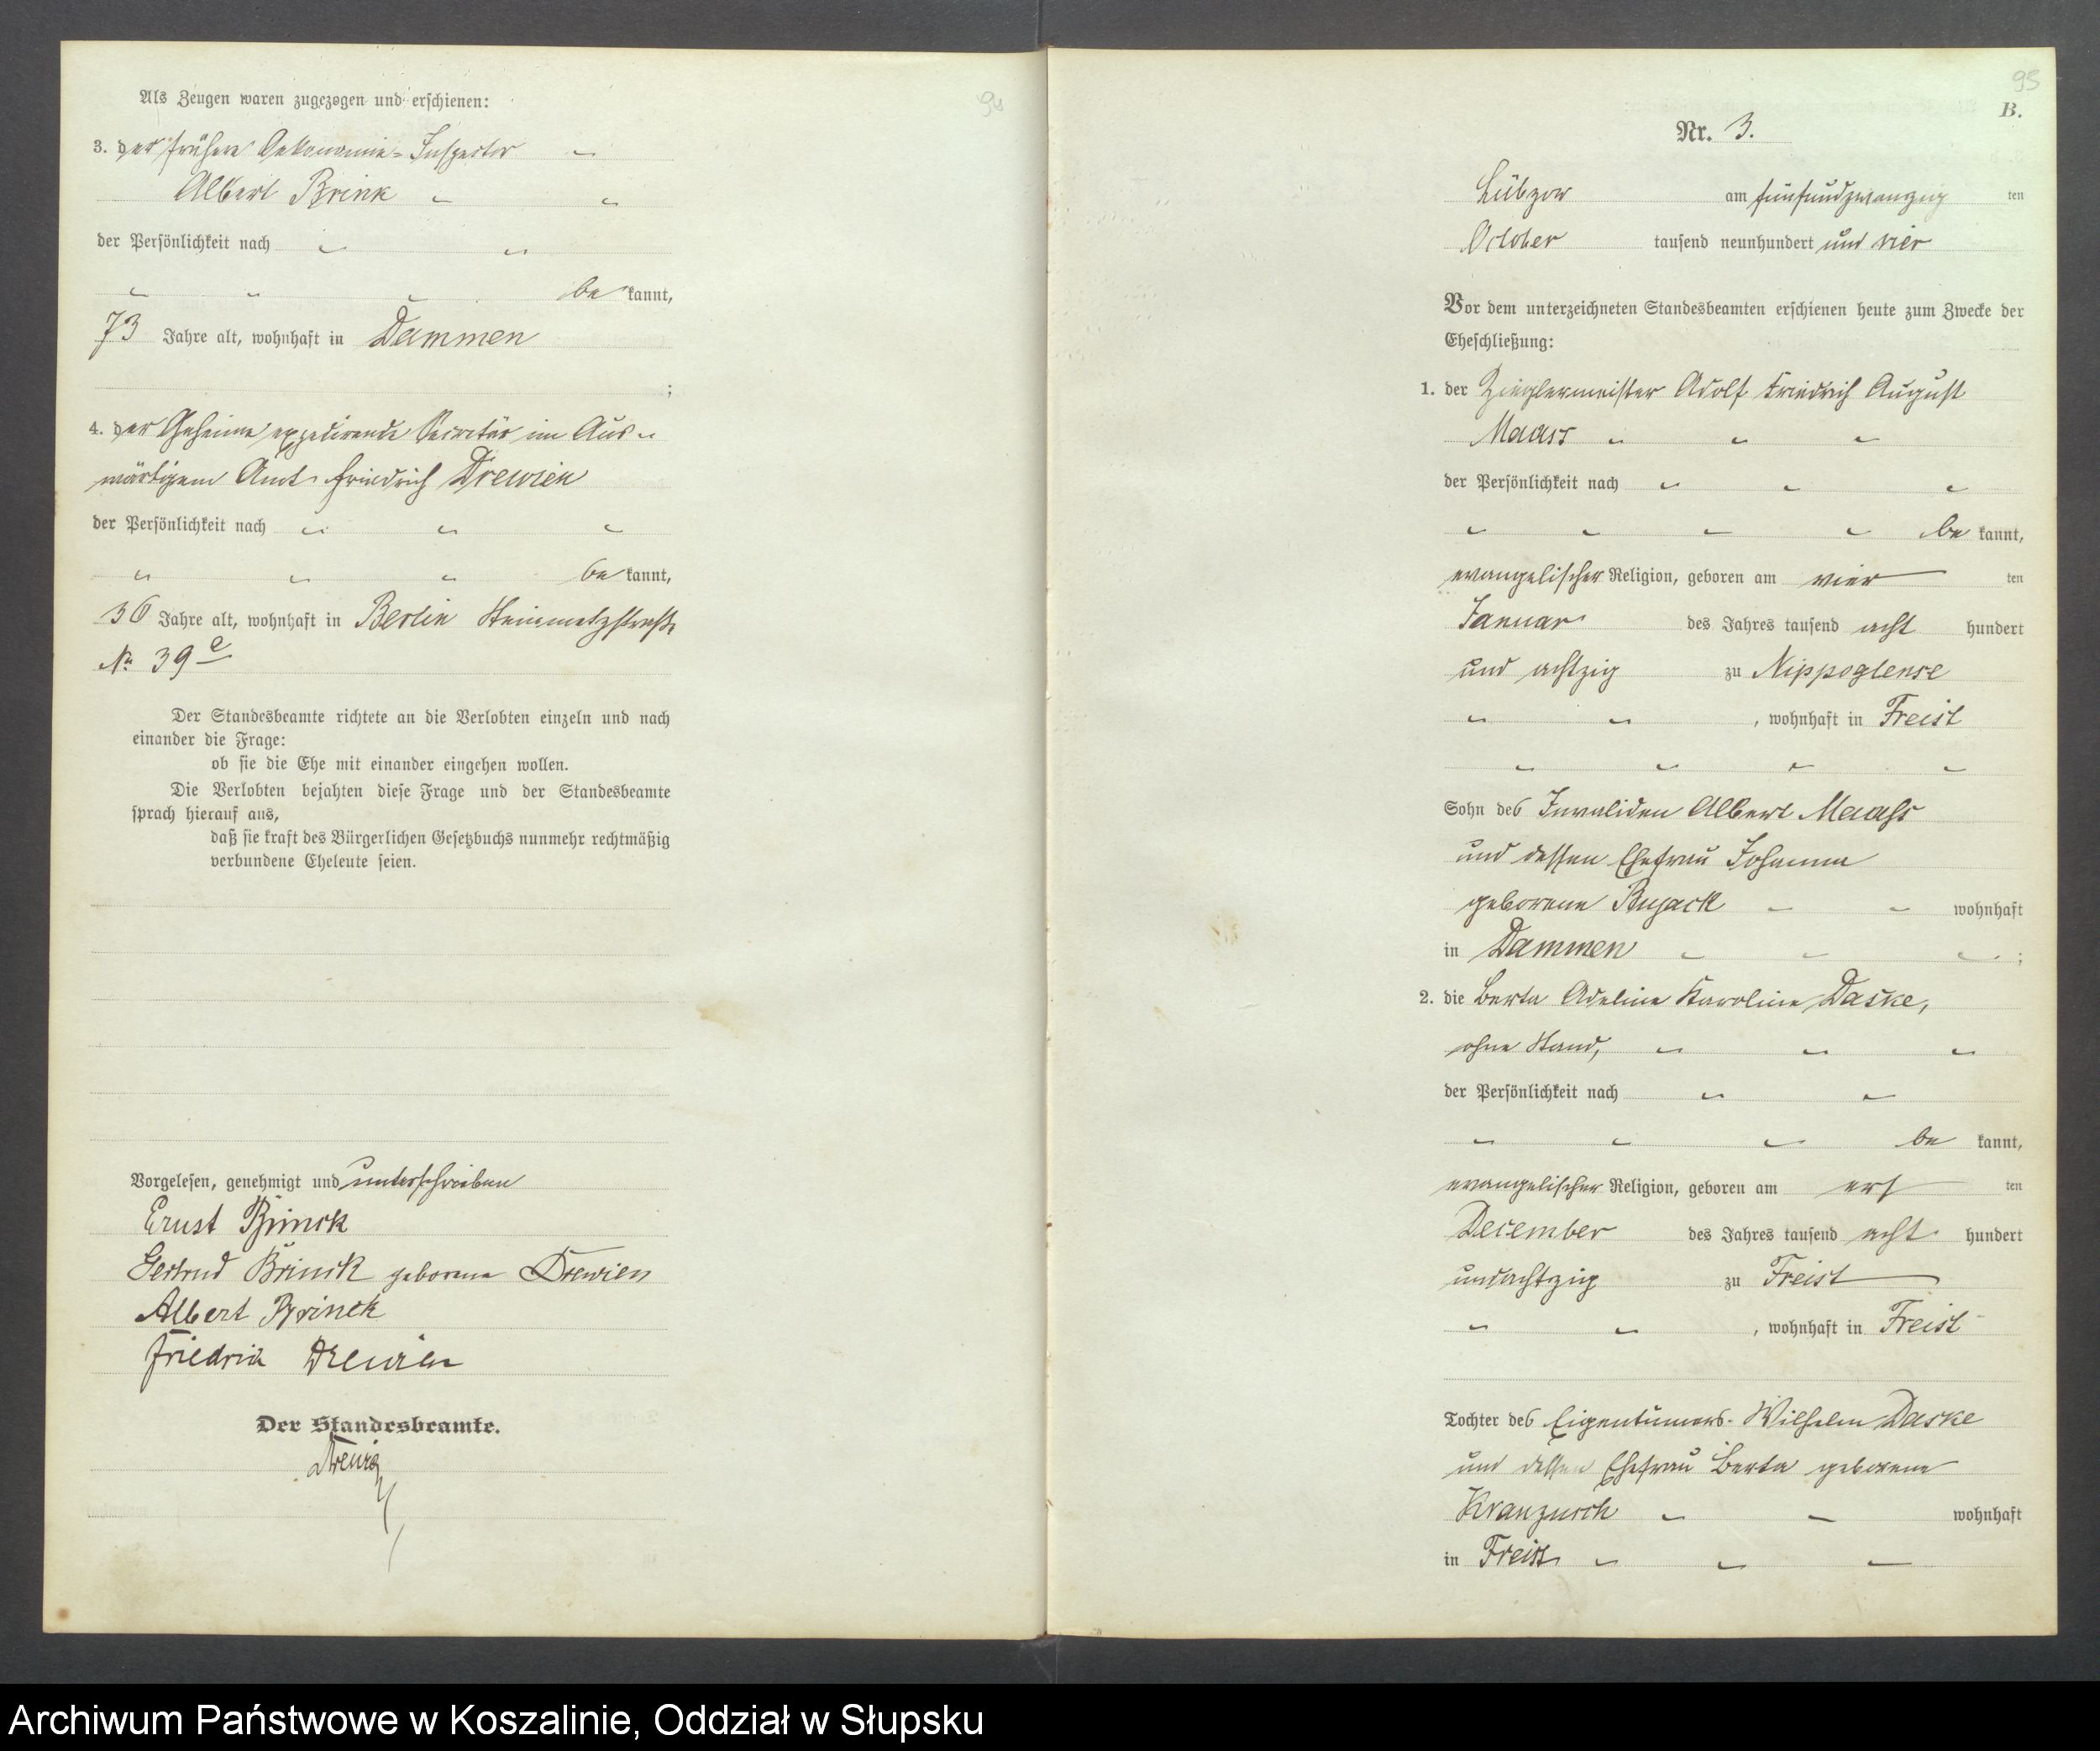 94
Als Zeugen waren zugezogen und erschienen:
3. der frühere Oekonomie-Inspector
Albert Brink
der Persönlichkeit nach
be kannt,
73 Jahre alt, wohnhaft in Dammen
;
4. der Geheime expedirende Secretär im Aus-
wärtigem Amt Friedrich Drewien
der Persönlichkeit nach
be kannt,
36 Jahre alt, wohnhaft in Berlin Steinmetzstraße
No 39a
Der Standesbeamte richtete an die Verlobten einzeln und nach
einander die Frage:
ob sie die Ehe mit einander eingehen wollen.
Die Verlobten bejahten diese Frage und der Standesbeamte
sprach hierauf aus,
daß sie kraft des Bürgerlichen Gesetzbuchs nunmehr rechtmäßig
verbundene Eheleute seien.
Vorgelesen, genehmigt und unterschrieben
Ernst Brinck
Gertrud Brinck geborene Drewien
Albert Brinck
Friedrich Drewien
Der Standesbeamte.
95
B.
Nr. 3.
Lübzow am fünfundzwanzig ten
October tausend neunhundert und vier
Vor dem unterzeichneten Standesbeamten erschienen heute zum Zwecke der
Eheschließung:
1. der Zieglermeister Adolf Friedrich August
Maass
der Persönlichkeit nach
be kannt,
evangelischer Religion, geboren am vier ten
Januar des Jahres tausend acht hundert
und achtzig zu Nippoglense
, wohnhaft in Freist
Sohn des Invaliden Albert Maaß
und dessen Ehefrau Johanna
geborene Bujack wohnhaft
in Dammen ;
2. die Berta Adeline Karoline Daske,
ohne Stand,
der Persönlichkeit nach
be kannt,
evangelischer Religion, geboren am ers ten
December des Jahres tausend acht hundert
undachtzig zu Freist
, wohnhaft in Freist
Tochter des Eigentümers Wilhelm Daske
und dessen Ehefrau Berta geborene
Kranzusch wohnhaft
in Freist
Archiwum Państwowe w Koszalinie, Oddział w Słupsku